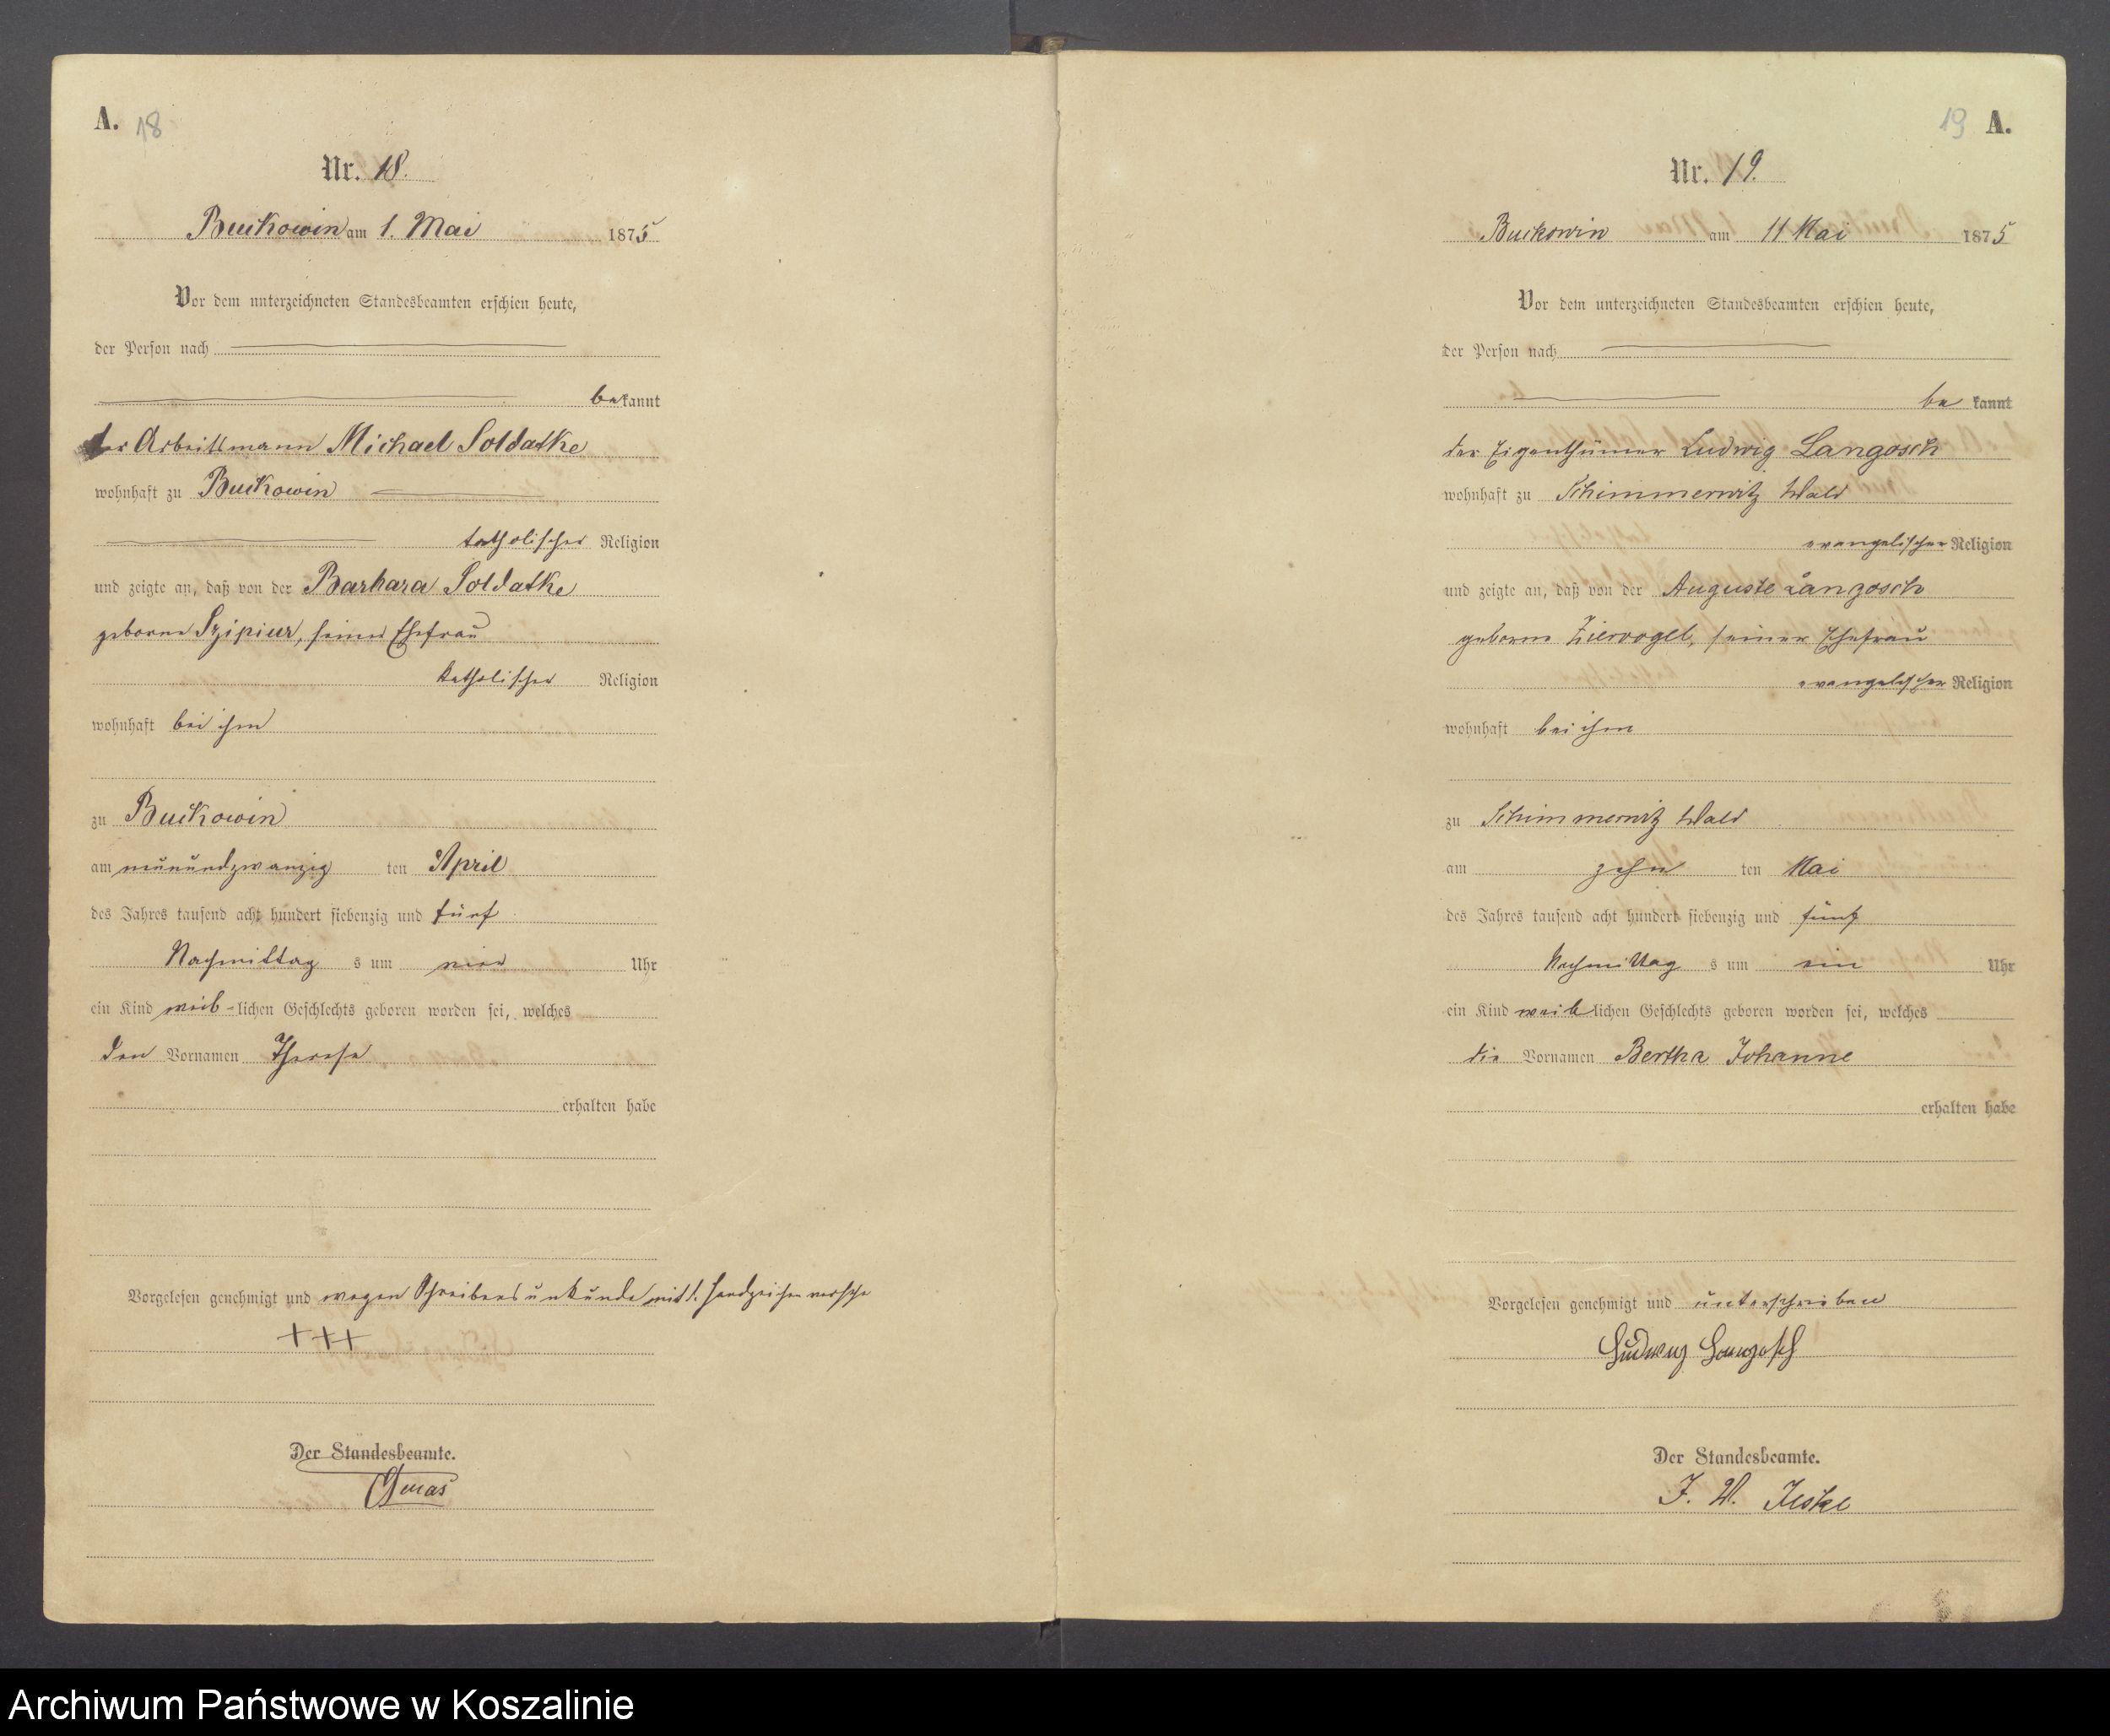 A. 18
Nr. 18.
Buckowin am 1. Mai 1875
Vor dem unterzeichneten Standesbeamten erschien heute,
der Person nach
bekannt
der Arbeitsmann Michael Soldatke
wohnhaft zu Buckowin
katholischer Religion
und zeigte an, daß von der Barbara Soldatke
geborne Szipiur, seiner Ehefrau
katholischer Religion
wohnhaft bei ihm
zu Buckowin
am neunundzwanzig ten April
des Jahres tausend acht hundert siebenzig und fünf
Nachmittag s um vier Uhr
ein Kind weib-lichen Geschlechts geboren worden sei, welches
den Vornamen Therese
erhalten habe
Vorgelesen genehmigt und wegen Schreibensunkunde mit d. Handzeichen versehe
+++
Der Standesbeamte.
19 A.
Nr. 19.
Buckowin am 11 Mai 1875
Vor dem unterzeichneten Standesbeamten erschien heute,
der Person nach
be kannt
der Eigenthümer Ludwig Langosch
wohnhaft zu Schimmerwitz Wald
evangelischer Religion
und zeigte an, daß von der Auguste Langosch
geborne Ziervogel, seiner Ehefrau
evangelischer Religion
wohnhaft bei ihm
zu Schimmerwitz Wald
am zehn ten Mai
des Jahres tausend acht hundert siebenzig und fünf
Nachmittag s um ein Uhr
ein Kind weiblichen Geschlechts geboren worden sei, welches
die Vornamen Bertha Johanne
erhalten habe
Vorgelesen genehmigt und unterschrieben
Ludwig Langosch
Der Standesbeamte.
J. W. Jeske
Archiwum Państwowe w Koszalinie